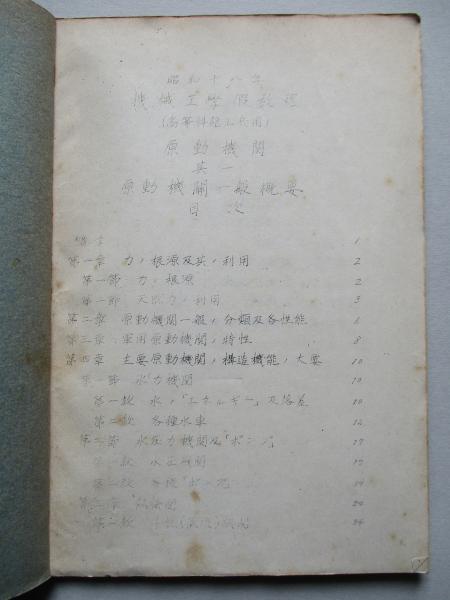 昭和十八年
機械工學假教程
(高等科砲工共用)
原動機関
其一
原動機關一般概要
目次
緒言 1
第一章 力ノ根源及其ノ利用 2
第一節 力ノ根源 2
第二節 天然力ノ利用 3
第二章 原動機關一般ノ分類及各性能 6
第三章 軍用原動機關ノ特性 8
第四章 主要原動機關ノ構造機能ノ大要 10
第一節 水力機関 10
第一款 水ノ「エネルギー」及落差 10
第二款 各種水車 12
第二節 水圧力機関及「ポンプ」 17
第一款 水圧機関 17
第二款 各種「ポンプ」 19
24
24